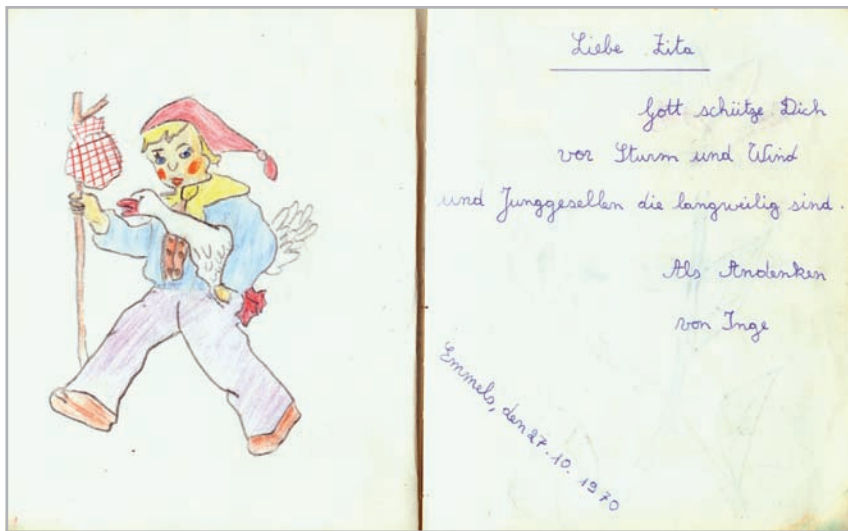 Liebe Zita
Gott schütze Dich
vor Sturm und Wind
und Junggesellen die langweilig sind.
Als Andenken
von Inge
Emmels, den 27.10.1970